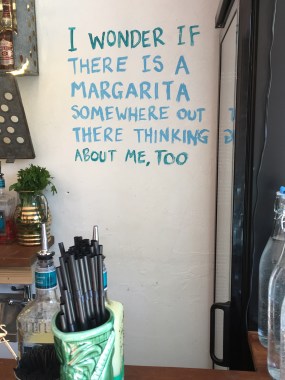 I WONDER IF
THERE IS A
MARGARITA
SOMEWHERE OUT
THERE THINKING
ABOUT ME, TOO